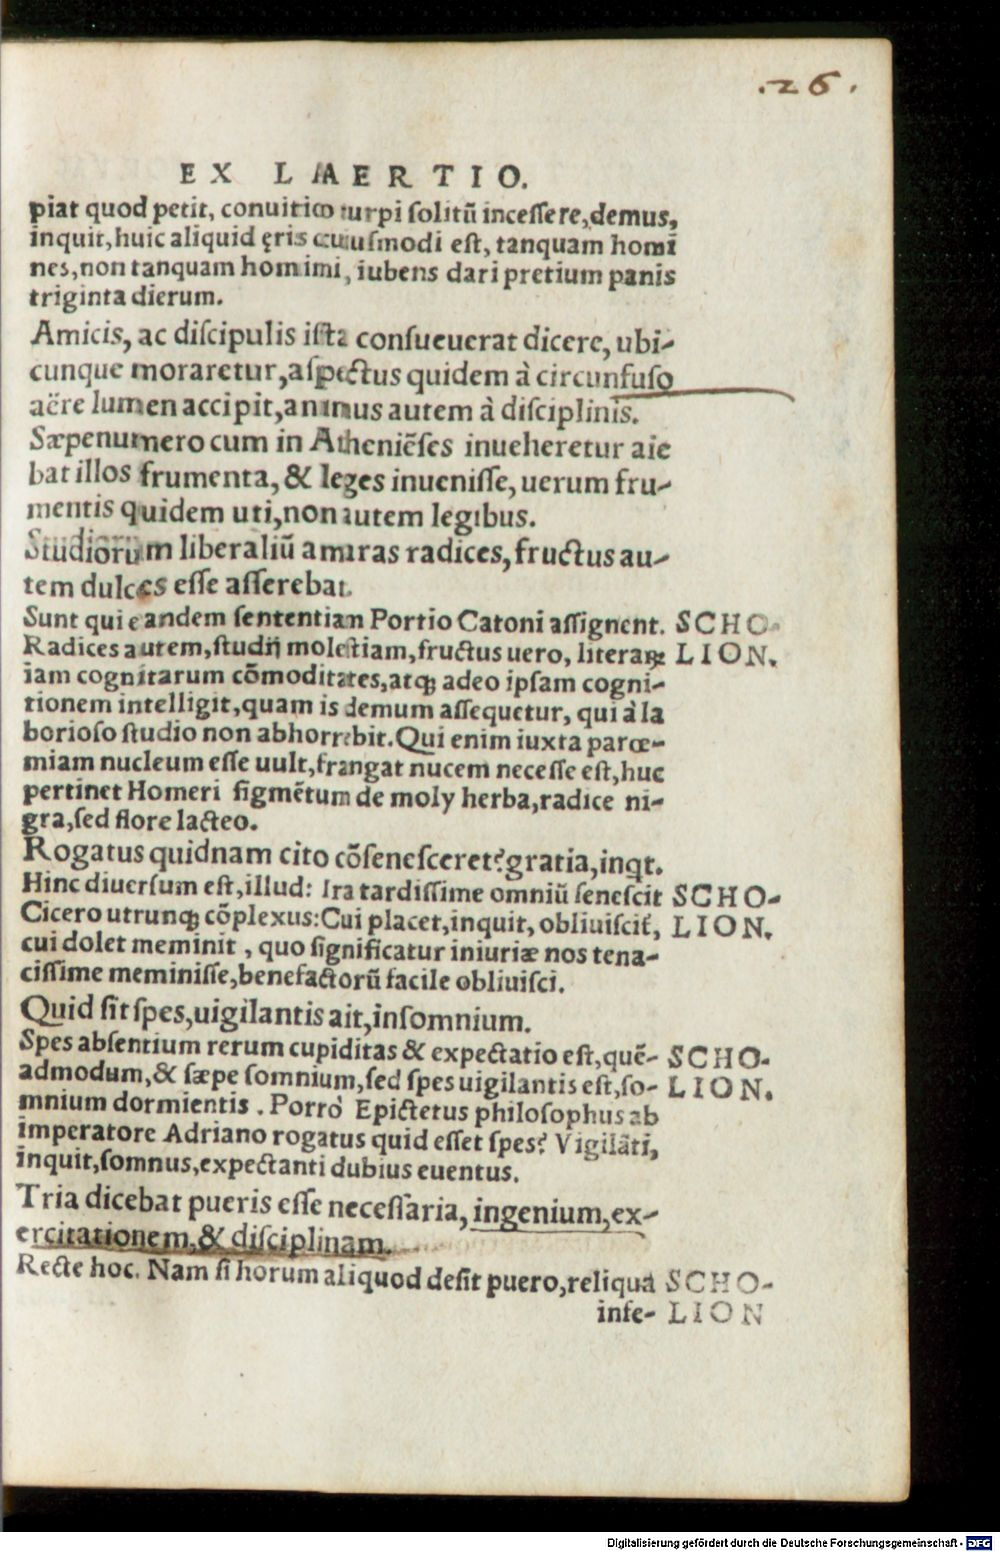 .26.
EX LAERTIO.
piat quod petit, conuitio turpi ſolitũ inceſſere, demus,
inquit, huic aliquid ęris cuiuſmodi eſt, tanquam homi
nes, non tanquam homini, iubens dari pretium panis
triginta dierum.
Amicis, ac diſcipulis iſta conſueuerat dicere, ubi-
cunque moraretur, aſpectus quidem à circunfuſo
aëre lumen accipit, animus autem à diſciplinis.
Sæpenumero cum in Atheniẽſes inueheretur aie
bat illos frumenta, & leges inueniſſe, uerum fru-
mentis quidem uti, non autem legibus.
Studiorum liberaliũ amaras radices, fructus au-
tem dulces eſſe aſſerebat.
Sunt qui eandem ſententiam Portio Catoni aſſignent. SCHO-
Radices autem, ſtudij moleſtiam, fructus uero, literaꝝ LION.
iam cognitarum cõmoditates, atqꝫ adeo ipſam cogni-
tionem intelligit, quam is demum aſſequetur, qui à la
borioſo ſtudio non abhorrebit. Qui enim iuxta parœ-
miam nucleum eſſe uult, frangat nucem neceſſe eſt, huc
pertinet Homeri figmẽtum de moly herba, radice ni-
gra, ſed flore lacteo.
Rogatus quidnam cito cõſeneſceret? gratia, inqt.
Hinc diuerſum eſt, illud: Ira tardiſſime omniũ ſeneſcit SCHO-
Cicero utrunqꝫ cõplexus: Cui placet, inquit, obliuiſcit᷑, LION.
cui dolet meminit, quo ſignificatur iniuriæ nos tena-
ciſſime meminiſſe, benefactorũ facile obliuiſci.
Quid ſit ſpes, uigilantis ait, inſomnium.
Spes abſentium rerum cupiditas & expectatio eſt, quẽ- SCHO-
admodum, & ſæpe ſomnium, ſed ſpes uigilantis eſt, ſo- LION.
mnium dormientis. Porrò Epictetus philoſophus ab
imperatore Adriano rogatus quid eſſet ſpes? Vigilãti,
inquit, ſomnus, expectanti dubius euentus.
Tria dicebat pueris eſſe neceſſaria, ingenium, ex-
ercitationem, & diſciplinam.
Recte hoc. Nam ſi horum aliquod deſit puero, reliqua SCHO-
infe- LION
Digitalisierung gefördert durch die Deutsche Forschungsgemeinschaft - DFG